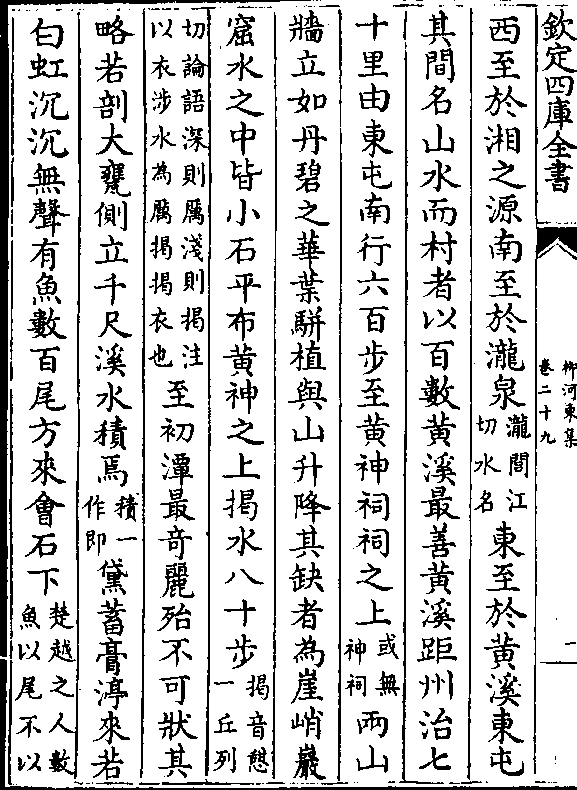 欽定四庫全書
柳河東集
卷二十九
一
西至於湘之源南至於瀧泉瀧間江切水名東至於黄溪東屯
其間名山水而村者以百數黄溪最善黄溪距州治七
十里由東屯南行六百步至黄神祠祠之上或無神祠两山
牆立如丹碧之華葉駢植與山升降其缺者為崖峭巖
窟水之中皆小石平布黄神之上揭水八十步揭音憇一丘列
切論語深則厲淺則揭注以衣涉水為厲揭揭衣也至初潭最竒麗殆不可狀其
略若剖大甕側立千尺溪水積焉積一作即黛蓄膏渟來若
白虹沉沉無聲有魚數百尾方來會石下楚越之人數魚以尾不以